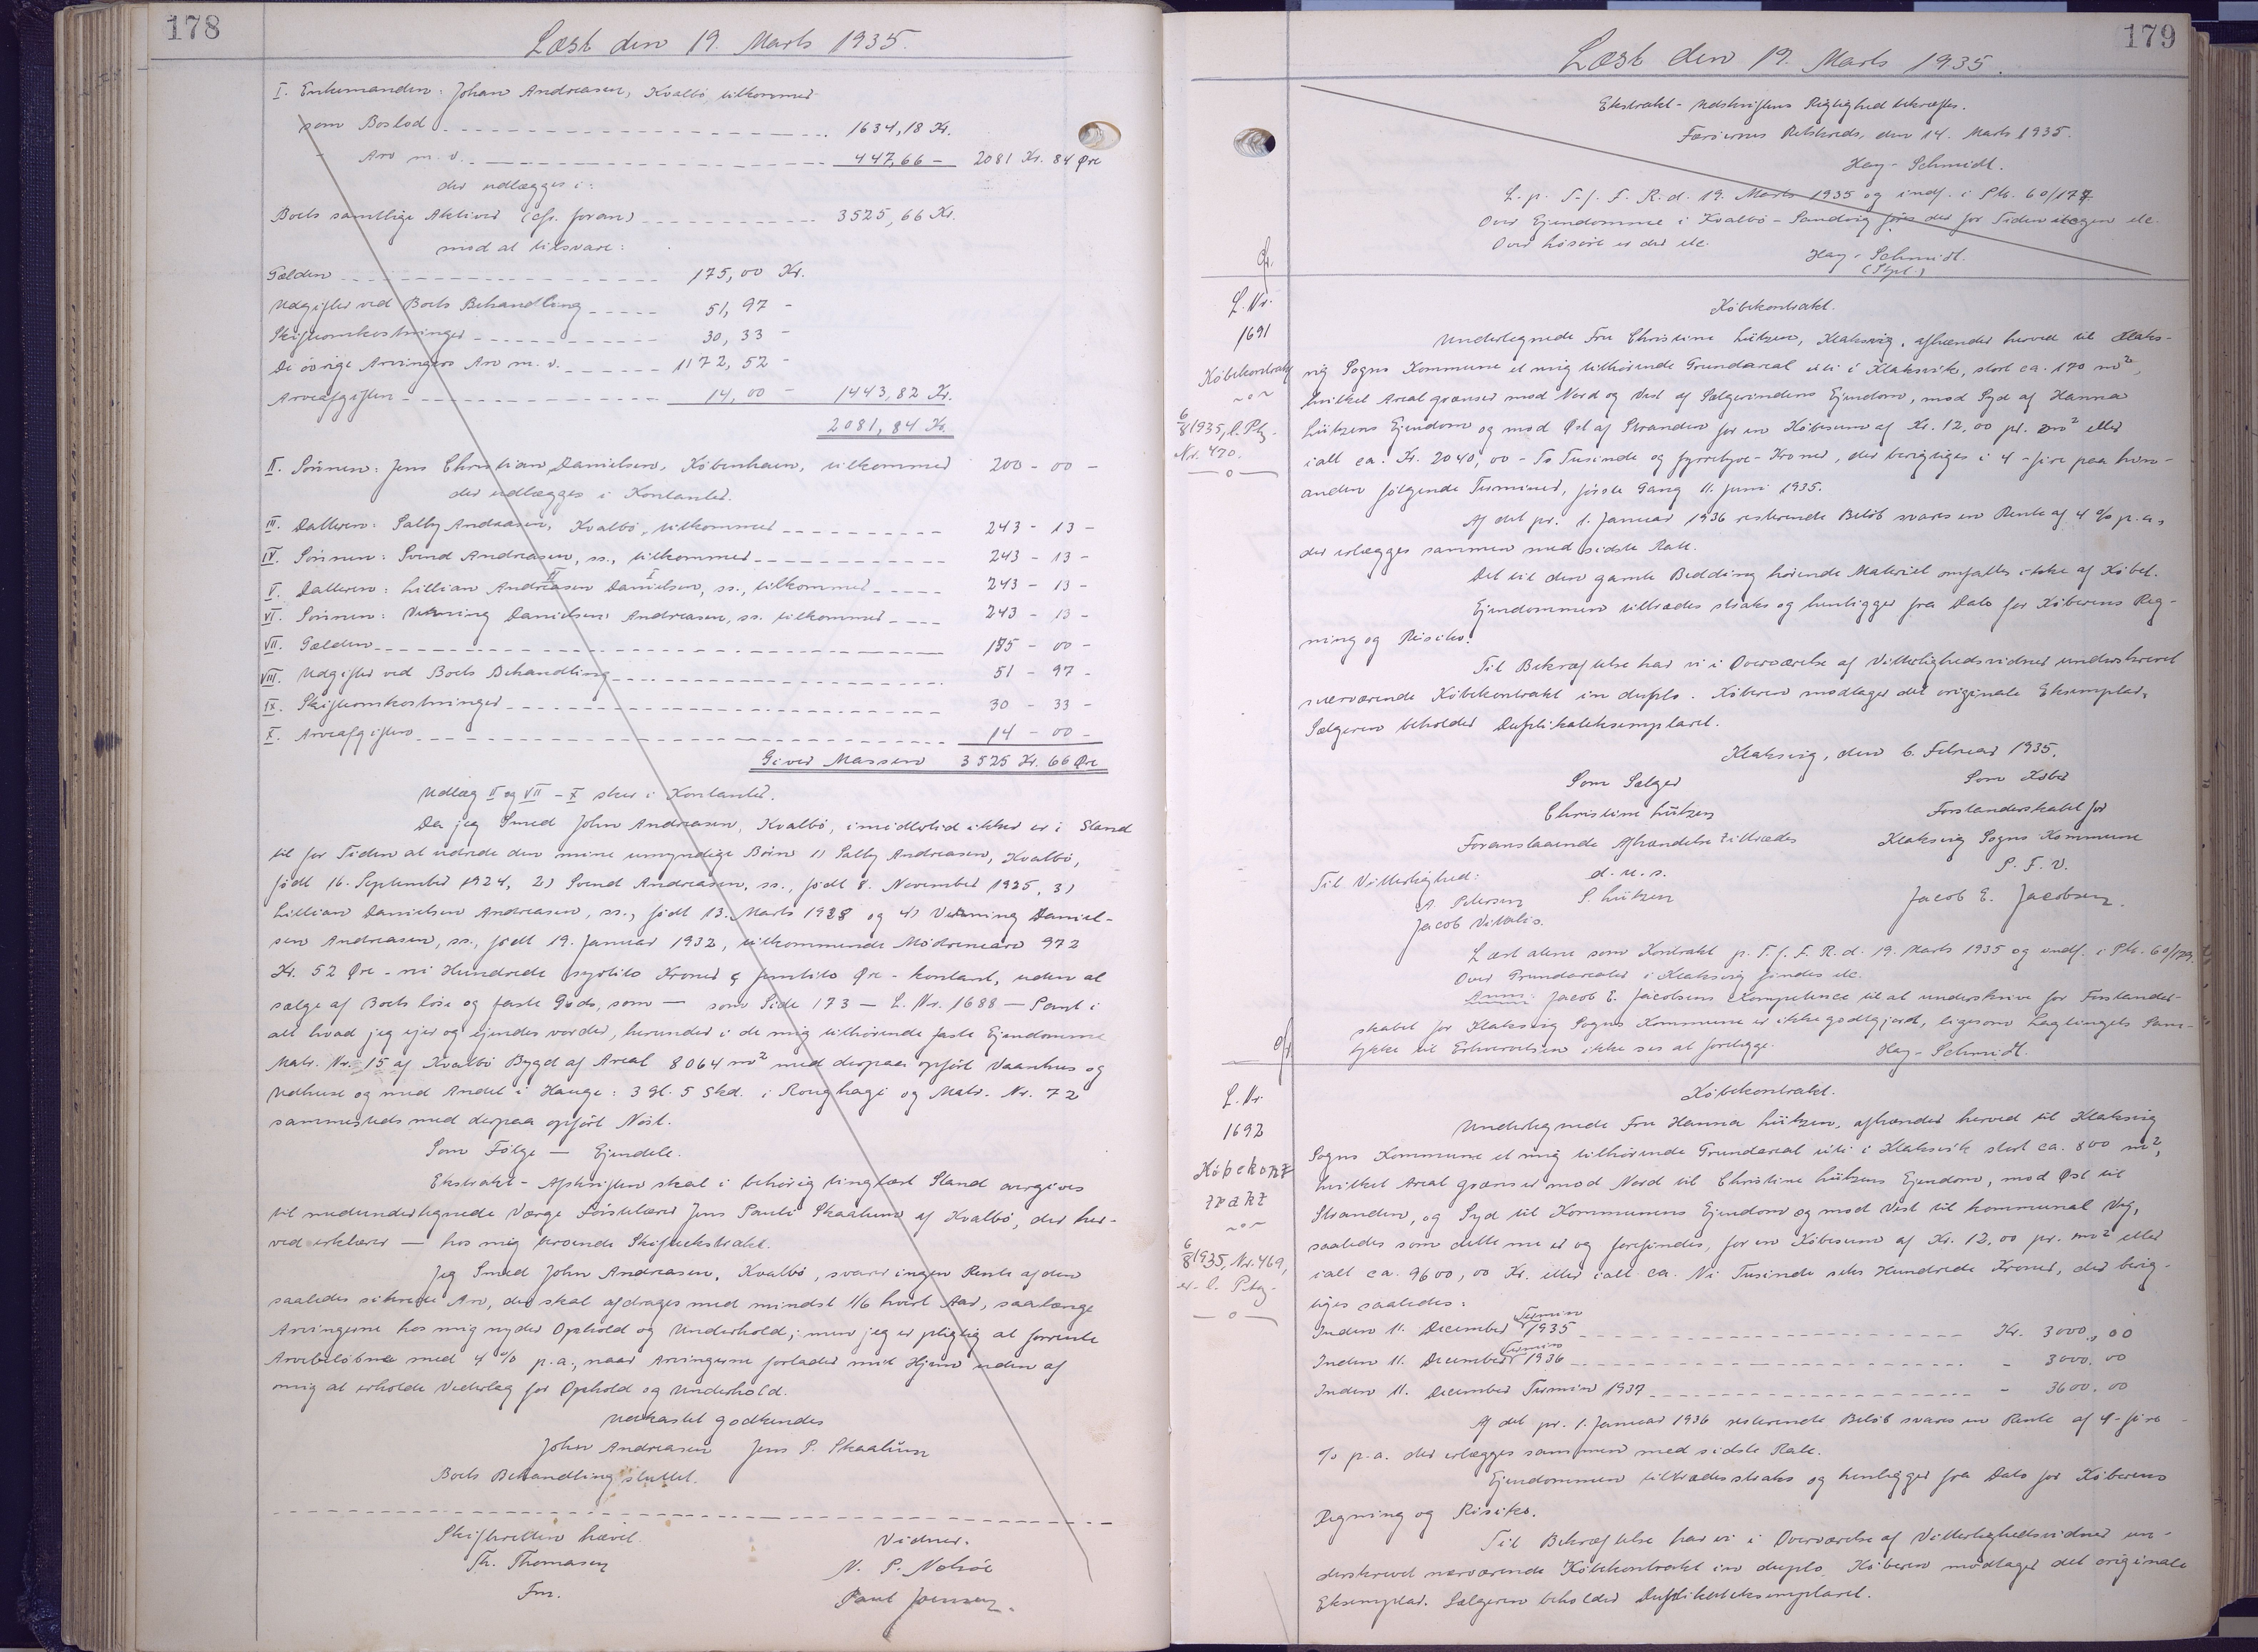 178
Læst den 19. Marts 1935.
I. Enkemanden: Johan Andreasen, Kvalbö tilkommer
som Boslod 1634,18 Kr.
- Arv m. v. 447,66 - 2081 Kr. 84 Øre
der udlægges i:
Boets samtlige Aktiver (cfr. foran) 3525,66 Kr.
mod at tilsvare:
Gælden 175,00 Kr.
Udgifter ved Boets Behandling 51,97 -
Skifteomkostninger 30,33 -
De övrige Arvingers Arv m. v. 1172,52 -
Arveafgiften 14,00 - 1443,82 Kr.
2081,84 Kr.
II. Sönnen: Jens Christian Danielsen, København, tilkommer 200 - 00 -
der udlægges i Kontanter.
III. Datteren: Sally Andreasen, Kvalbö, tilkommer 243 - 13 -
IV. Sönnen: Svend Andreasen, ss., tilkommer 243 - 13 -
V. Datteren: Lillian Andreasen Danielsen, ss., tilkommer 243 - 13 -
VI. Sönnen: Danielsen Andreasen, ss. tilkommer 243 - 13 -
VII. Gælden 175 - 00 -
VIII. Udgifter ved Boets Behandling 51 - 97 -
IX. Skifteomkostninger 30 - 33 -
X. Arveafgiften 14 - 00 -
Giver Massen 3525 Kr. 66 Øre
Udlæg II og VII - X sker i Kontanter.
Da jeg Smed John Andreasen, Kvalbö, imidlertid ikke er i Stand
til for Tiden at udrede den mine umyndige Börn 1) Sally Andreasen, Kvalbö,
födt 16. September 1924, 2) Svend Andreasen, ss., födt 8. November 1925, 3)
Lillian Danielsen Andreasen, ss., födt 13. Marts 1928 og 4) Daniel-
sen Andreasen, ss., födt 19. Januar 1932, tilkommende Mödrenearv 972
Kr. 52 Øre - ni Hundrede syvtito Kroner & femtito Øre - kontant, uden at
sælge af Boets löse og faste Gods, som — som Side 173 — L. Nr. 1688 — Pant i
alt hvad jeg ejer og ejendes vorder, herunder i de mig tilhörende faste Ejendomme
Matr. Nr. 15 af Kvalbö Bygd af Areal 8064 m² med derpaa opfört Vaanhus og
Udhuse og med Andel i Hauge: 3 Gl. 5 Skd. i Roughagi og Matr. Nr. 72
sammesteds med derpaa opfört Nöst.
Som Fölge — Ejendele.
Ekstrakt-Afskriften skal i behörig tinglæst Stand overgives
til medundertegnede Værge Förstelærer Jens Pauli Skaalum af Kvalbö, der her-
ved erklærer — hos mig beroende Skifteekstrakt.
Jeg Smed John Andreasen, Kvalbö, svarer ingen Rente af den
saaledes sikrede Arv, der skal afdrages med mindst 1/6 hvert Aar, saalænge
Arvingerne hos mig nyder Ophold og Underhold; men jeg er pligtig at forrente
Arvebelöbne med 4 % p. a., naar Arvingerne forlader mit Hjem uden af
mig at erholde Vederlag for Ophold og Underhold.
Udkastet godkendes
John Andreasen Jens P. Skaalum
Boets Behandling sluttet.
Skifteretten hævet. Vidner.
Th. Thomasen N. P. Nolsöe
Fm. Paul Joensen.
179
Læst den 19. Marts 1935.
Ekstrakt-Udskriftens Rigtighed bekræftes.
Færöernes Retskreds, den 14. Marts 1935.
Hey-Schmidt.
L. p. T. f. F. R. d. 19. Marts 1935 og indf. i Ptk. 60/177
Over Ejendomme i Kvalbö-Sandvig föres der for Tiden etc.
Over Lösöre er der etc.
Hey-Schmidt.
L. Nr.
1691
Köbekontrakt
6/8 1935, l. Ptg.
Nr. 470.
Köbekontrakt.
Undertegnede Fru Christine Lützen, Klaksvig, afhænder herved til Klaks-
vig Sogns Kommune et mig tilhörende Grundareal uti i Klaksvik, stort ca. 170 m²,
hvilket Areal grænser mod Nord og Vest af Sælgerindens Ejendom, mod Syd af Hanna
Lützens Ejendom og mod Öst af Stranden for en Köbesum af Kr. 12,00 pr. m² eller
ialt ca. Kr. 2040,00 - To Tusinde og fyrretyve - Kroner, der berigtiges i 4 - fire paa hin-
anden fölgende Terminer, förste Gang 11. Juni 1935.
Af det pr. 1. Januar 1936 resterende Belöb svares en Rente af 4 % p. a.,
der erlægges sammen med sidste Rate.
Det til den gamle Bedding hörende Materiel omfattes ikke af Köbet.
Ejendommen tiltrædes straks og henligger fra Dato for Köberens Reg-
ning og Risiko.
Til Bekræftelse har vi i Overværelse af Vitterlighedsvidner underskrevet
nærværende Köbekontrakt in duplo. Köberen modtager det originale Eksemplar,
Sælgeren beholder Duplikateksemplaret.
Klaksvig, den 6. Februar 1935.
Som Sælger Som Köber
Christine Lützen Forstanderskabet for
Foranstaaende Afhændelse tiltrædes Klaksvig Sogns Kommune
Til Vitterlighed: d. u. s. P. F. V.
A Petersen P. Lützen Jacob E. Jacobsen.
Jacob Vitalis.
Læst alene som Kontrakt p. T. f. F. R. d. 19. Marts 1935 og indf. i Ptk. 60/179.
Over Grundarealer i Klaksvig findes etc.
Anm: Jacob E. Jacobsens Kompetence til at underskrive for Forstander-
skabet for Klaksvig Sogns Kommune er ikke godtgjord, ligesom Lagtingets Sam-
tykke til Erhvervelsen ikke ses at foreligge. Hey-Schmidt.
L. Nr.
1692
Köbekont
rakt
6/8 1935, Nr. 469,
l. Ptg.
Köbekontrakt.
Undertegnede Fru Hanna Lützen, afhænder herved til Klaksvig
Sogns Kommune et mig tilhörende Grundareal uti i Klaksvik stort ca. 800 m²,
hvilket Areal grænser mod Nord til Christine Lützens Ejendom, mod Öst til
Stranden, og Syd til Kommunens Ejendom og mod Vest til kommunal Vej,
saaledes som dette nu er og forefindes, for en Köbesum af Kr. 12,00 pr. m² eller
ialt ca. 9600,00 Kr. eller ialt ca. Ni Tusinde seks Hundrede Kroner, der berig-
tiges saaledes:
Inden 11. December Termin 1935 Kr. 3000,00
Inden 11. December Termin 1936 - 3000.00
Inden 11. December Termin 1937 - 3600.00
Af det pr. 1. Januar 1936 resterende Belöb svares en Rente af 4 - fire
% p. a. der erlægges sammen med sidste Rate.
Ejendommen tiltrædes straks og henligger fra Dato for Köberens
Regning og Risiko.
Til Bekræftelse har vi i Overværelse af Vitterlighedsvidner un-
derskrevet nærværende Köbekontrakt in duplo. Köberen modtager det originale
Eksemplar. Sælgeren beholder Duplikateksemplaret.